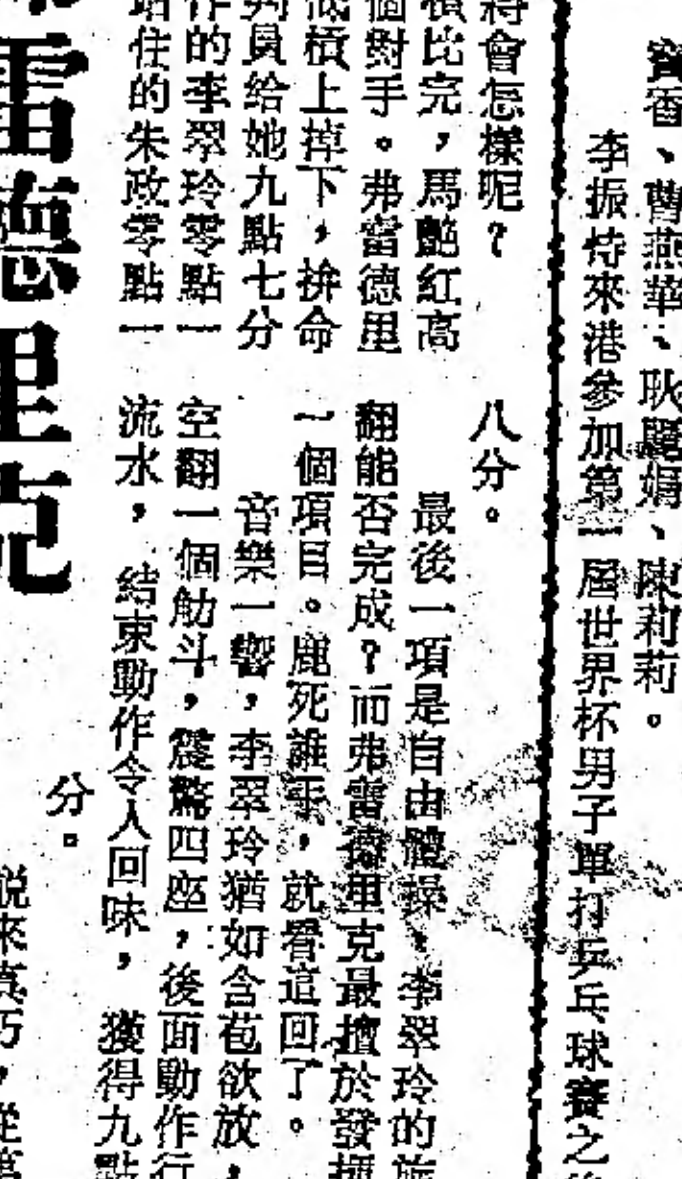 寶香、曹燕華、耿麗娟、陳莉莉。
李振恃來港參加第一屆世界杯男子單打乒乓球賽之後
將會怎樣呢？
橫比完，馬艷紅高
個對手。弗雷德里
低槓上掉下，拚命
判員給她九點七分
作的李翠玲零點一
站住的朱政零點一
八分。
最後一項是自由體操、李翠玲的旋
翻能否完成？而弗雷德里克最擅於發揮
一個項目。鹿死誰手，就看這回了。
音樂一響，李翠玲猶如含苞欲放，
空翻一個觔斗，震驚四座，後面動作行
流水，結束動作令人回味，獲得九點
分。
說來真巧，從第
雷德里克